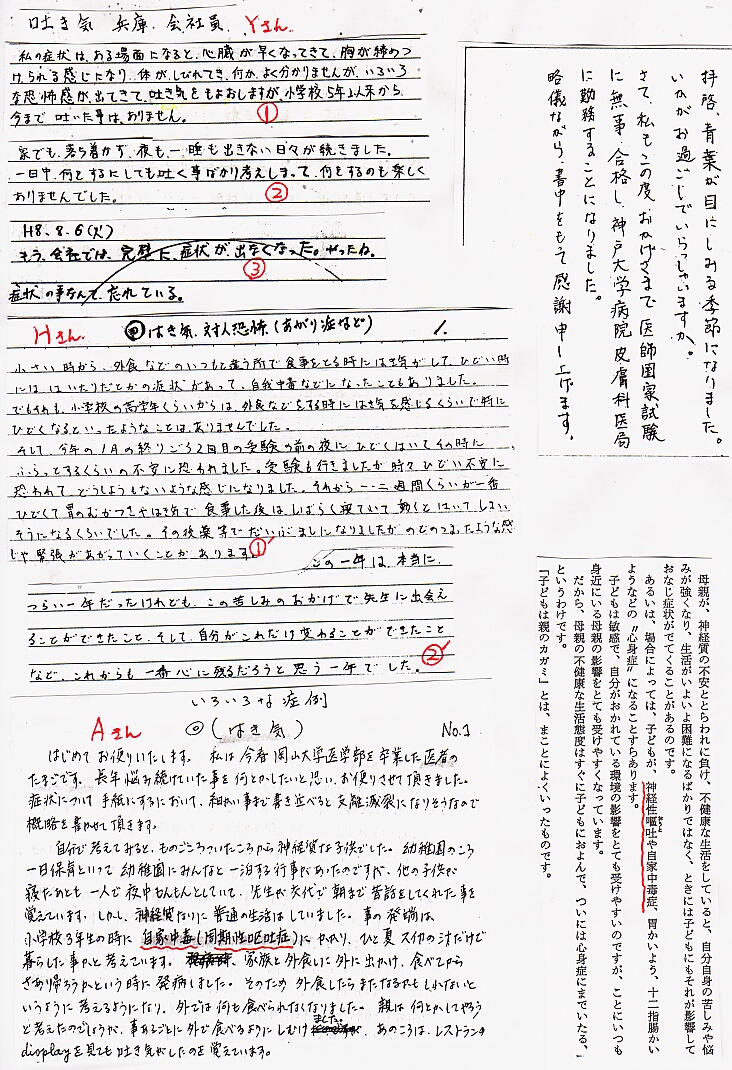 吐き気 兵庫. 会社員. Yさん
私の症状は、ある場面になると、心臓が早くなってきて、胸が締めつ
けられる感じになり、体がしびれてき、何か、よく分かりませんが、いろいろ
な恐怖感が、出てきて、吐き気をもよおしますが、小学校5年以来から、
今まで吐いた事は、ありません。
①
家でも、落ち着かず、夜も、一睡も出きない日々が続きました。
一日中、何をするにしても吐く事ばかり考えしまって、何をするのも楽しく
ありませんでした。
②
H8、8、6(火)
もう、会社では、完璧に、症状が、出なくなった。やったね。
③
症状の事なんて、忘れている。
Hさん
はき気、対人恐怖、(あがり症など)
1.
小さい時から、外食などのいつもと違う所で食事をとる時にはき気がして、ひどい時
には、はいたりだとかの症状があって、自家中毒などになったこともありました。
でもそれも、小学校の高学年くらいからは、外食などをする時にはき気を感じるくらいで特に
ひどくなるといったようなことは、ありませんでした。
そして、今年の1月の終りごろ2回目の受験の前の夜に、ひどくはいてその時に、
ふらっとするくらいの不安に恐われました。受験も行きましたが時々、ひどい不安に
恐われて、どうしようもないような感じになりました。それから一、二週間くらいが一番
ひどくて、胃のむかつきやはき気で、食事した後は、しばらく寝ていて、動くとはいてしまい
そうになるくらいでした。その後薬等でだいぶましになりましたが、のどのつまったような感
じや緊張があがっていくことがあります。
①
この一年は、本当に、
つらい一年だったけれども、この苦しみのおかげで先生に出会え
ることができたこと、そして、自分がこれだけ変わることができたこと
など、これからも一番心に残るだろうと思う一年でした。
②
いろいろな症例
Aさん
◎(はき気)
No.1
はじめてお便りいたします。私は今春岡山大学医学部を卒業した医者の
たまごです。長年悩み続けていた事を何とかしたいと思い、お便りさせて頂きました。
症状について手紙にするにおいて、細かい事まで書き並べると支離滅裂になりそうなので
概略を書かせて頂きます。
自分で考えてみると、ものごころついたころから神経質な子供でした。幼稚園のころ
一日保育といって幼稚園にみんなと一泊する行事があったのですが、他の子供が
寝たあとも一人で夜中もんもんとしていて、先生が交代で朝まで昔話をしてくれた事を
覚えています。しかし、神経質なりに普通の生活はしていました。事の発端は
小学校3年生の時に自家中毒(周期性嘔吐症)にかかり、ひと夏スイカの汁だけで
暮らした事かと考えています。家族と外食しに外に出かけ、食べてから
さあり帰ろうかという時に発病しました。そのため外食したらまたなるかもしれないと
いうように考えるようになり、外では何も食べられなくなりました。親は何とかしてやろう
と考えたのでしょうが、事あるごとに外で食べるようにしむけました。あのころは、レストランの
displayを見ても吐き気がしたのを覚えています。
拝啓、青葉が目にしみる季節になりました。
いかがお過ごしでいらっしゃいますか。
さて、私もこの度おかげさまで医師国家試験
に無事合格し、神戸大学病院皮膚科医局
に勤務することになりました。
略儀ながら、書中をもって感謝申し上げます。
母親が、神経質の不安ととらわれに負け、不健康な生活をしていると、自分自身の苦しみや悩
みが強くなり、生活がいよいよ困難になるばかりではなく、ときには子どもにもそれが影響して
おなじ症状がでてくることがあるのです。
あるいは、場合によっては、子どもが、神経性嘔吐や自家中毒症、胃かいよう、十二指腸かい
ようなどの〝心身症〟になることすらあります。
子どもは敏感で、自分がおかれている環境の影響をとても受けやすいのですが、ことにいつも
身近にいる母親の影響をとても受けやすくなっています。
だから、母親の不健康な生活態度はすぐに子どもにおよんで、ついには心身症にまでいたる、
というわけです。
「子どもは親のカガミ」とは、まことによくいったものです。